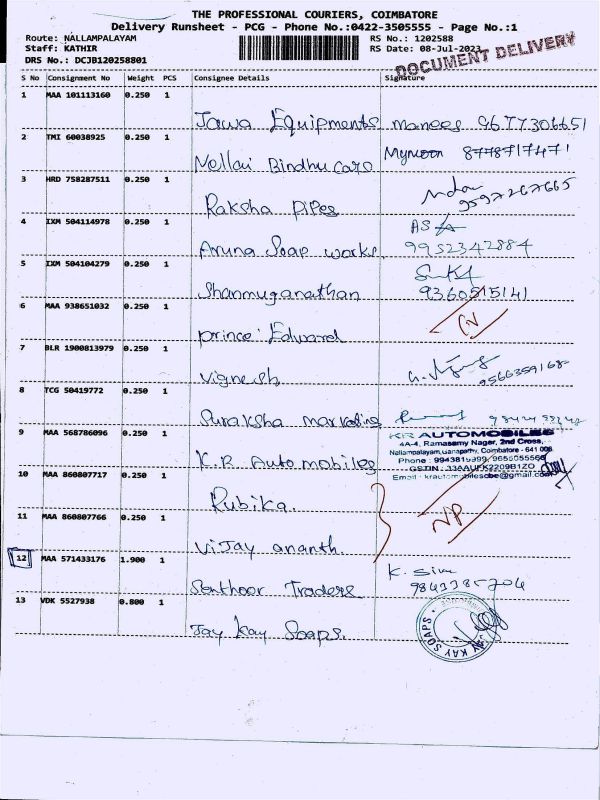 THE PROFESSIONAL COURIERS, COIMBATORE
Delivery Runsheet - PCG - Phone No.:0422-3505555 - Page No.:1
Route: NALLAMPALAYAM RS No.: 1202588
Staff: KATHIR RS Date: 08-Jul-2023
DRS No.: DCJB120258801
DOCUMENT DELIVERY
S No Consignment No Weight PCS Consignee Details Signature
1 MAA 101113160 0.250 1
Jawa Equipments manees 9677306651
2 TMI 60038925 0.250 1
Nellai Bindhu Cars 8778717471
3 HRD 758287511 0.250 1
Raksha Pipes 9597267665
4 IXM 504114978 0.250 1
Aruna Soap works 9952342884
5 IXM 504104279 0.250 1
Shanmuganathan 9360515141
6 MAA 938651032 0.250 1
Prince Edward
7 BLR 1900813979 0.250 1
Vignesh
8 TCG 50419772 0.250 1
Suraksha marketing
9 MAA 568786096 0.250 1
K.R. Automobiles
KR AUTOMOBILES
4A-4, Ramasamy Nager, 2nd Cross,
Nallampalayam, Ganapathy, Coimbatore - 641 006
10 MAA 860807717 0.250 1
Rubika.
11 MAA 860807766 0.250 1
NP
Vijay ananth.
12 MAA 571433176 1.900 1
Senthoor Traders
13 VDK 5527938 0.800 1
Jay Kay Soaps.
JAY KAY SOAPS